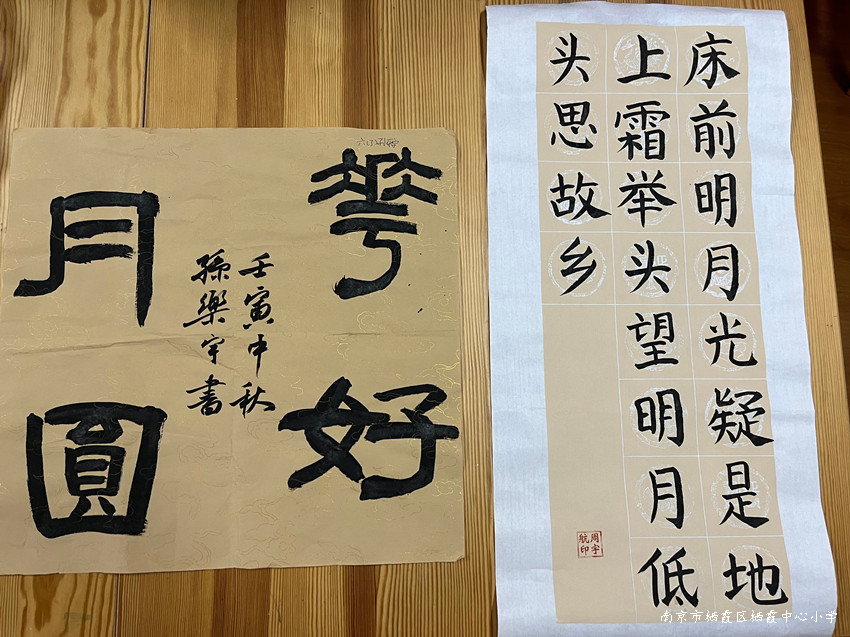 華好
壬寅中秋
孫樂宇書
月圓
床前明月光疑是地
上霜举头望明月低
头思故乡
周宇
航印
南京市栖霞区栖霞中心小学